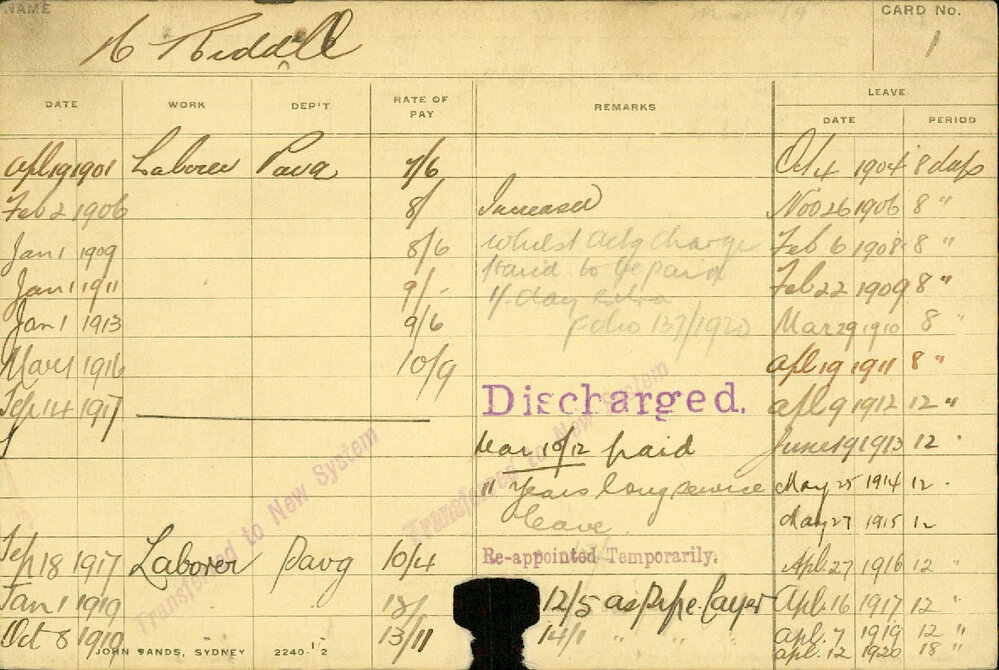 NAME
CARD No.
H Riddell
1
DATE WORK DEP'T RATE OF PAY REMARKS LEAVE
DATE PERIOD
Apl 19 1901 Laborer Pavg 7/6 Oct 4 1904 8 days
Feb 2 1906 8/ Increased Nov 26 1906 8 "
Jan 1 1909 8/6 Whilst Actg Charge Feb 6 1908 8 "
Hand to be paid
Jan 1 1911 9/- 1/- day extra Feb 22 1909 8 "
Jan 1 1913 9/6 Folio 137/1920 Mar 29 1910 8 "
Mar 1 1916 10/9 Apl 19 1911 8 "
Sep 14 1917 Discharged. Apl 9 1912 12 "
10/12 paid June 19 1913 12 "
Transferred to New System
Transferred to New System
" Years long service May 25 1914 12 "
leave May 27 1915 12
Re-appointed Temporarily.
Sep 18 1917 Laborer Pavg 10/4 Apl. 27 1916 12 "
Jan 1 1919 12/5 as Pipe layer Apl. 16 1917 12 "
Oct 8 1919 13/11 14/1 " " " Apl. 7 1919 12 "
Apl. 12 1920 18 "
JOHN SANDS, SYDNEY 2240-1-2